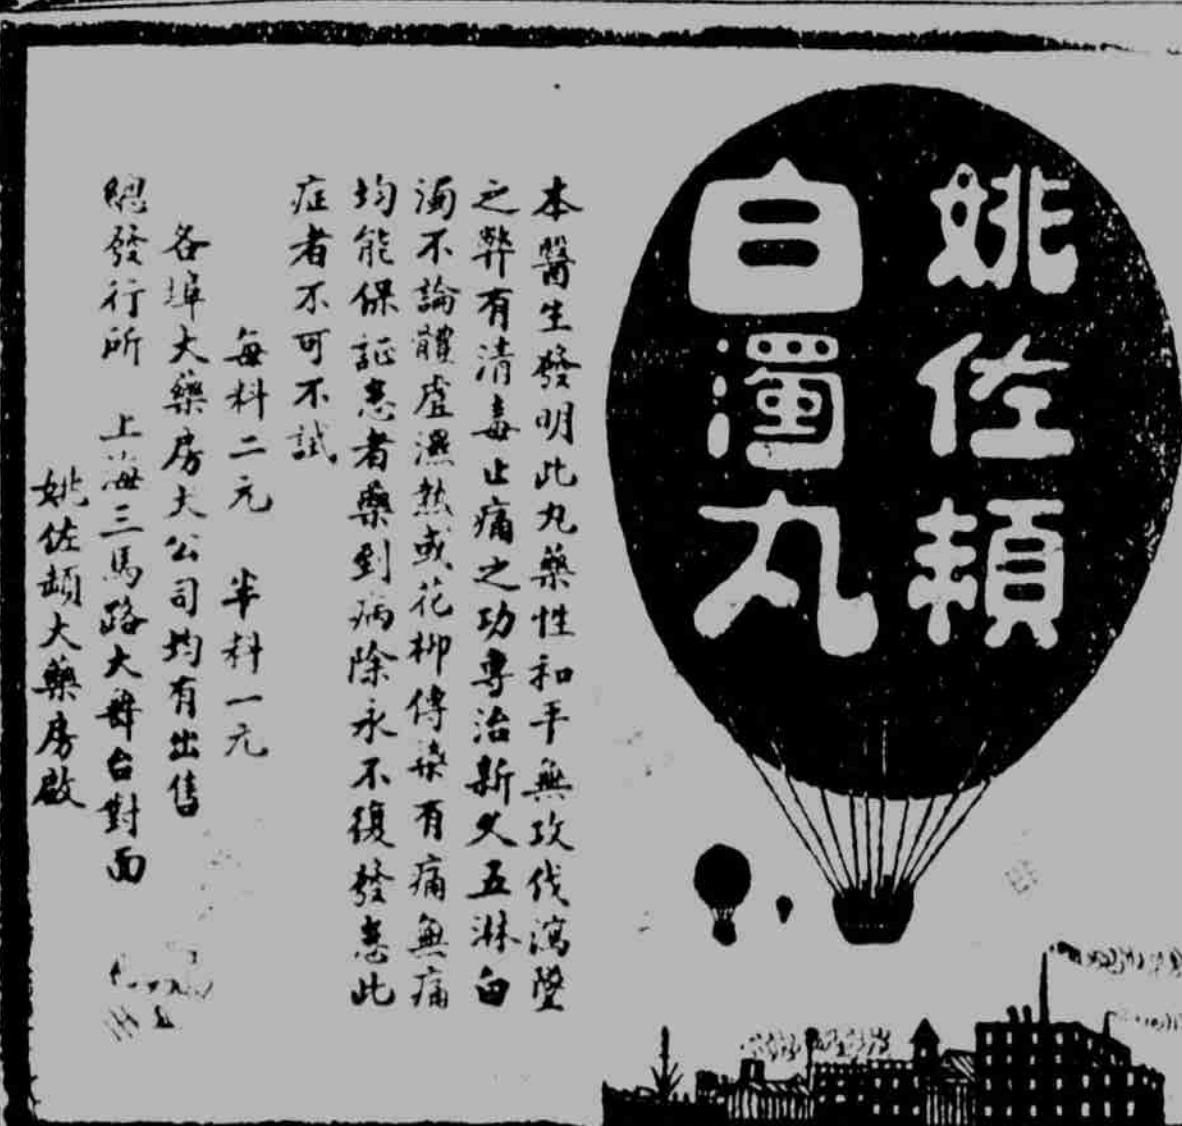 姚佐頓
白濁丸
本醫生發明此丸藥性和平無攻伐瀉墜
之弊有清毒止痛之功專治新久五淋白
濁不論體虛濕熱或花柳傳染有痛無痛
均能保証患者藥到病除永不復發患此
症者不可不試
每料二元 半料一元
各埠大藥房大公司均有出售
總發行所 上海三馬路大舞台對面
姚佐頓大藥房啟